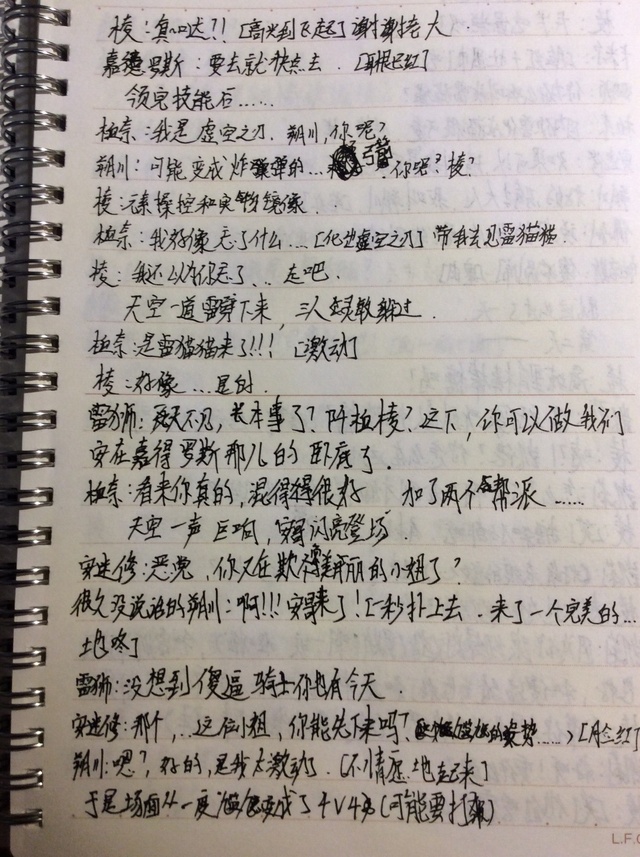 棱:真哒?![高兴到飞起]谢谢老大.
嘉德罗斯:要去就快点去.[耳根已红]
领完技能后……
柏奈:我是虚空之刃.朔川,你呢?
朔川:可能变成炸弹的…弓箭 你呢?棱?
棱:元素操控和实物镜像.
柏奈:我好像忘了什么…[化出虚空之刃]带我去见雷猫猫.
棱:我还以为你忘了…走吧.
天空一道雷劈下来,三人灵敏躲过.
柏奈:是雷猫猫来了!!![激动]
棱:好像…是的.
雷狮:两天不见,长本事了?阿拉棱?这下,你可以做我们
安在嘉得罗斯那儿的卧底了.
柏奈:看来你真的,混得得很好 加了两个帮派……
天空一声巨响,安哥闪亮登场
安迷修:恶党,你又在欺负美丽的小姐了?
很久没说话的朔川:啊!!!安哥来了![一秒扑上去.来了一个完美的…
地咚]
雷狮:没想到傻逼骑士你也有今天.
安迷修:那个,…这位小姐,你能先下来吗?尴尬的姿势……)[脸红]
朔川:嗯?,好的,是我太激动了.[不情愿地起来]
于是场面从一度尴尬变成了4V4(可能要打架)
L.F.